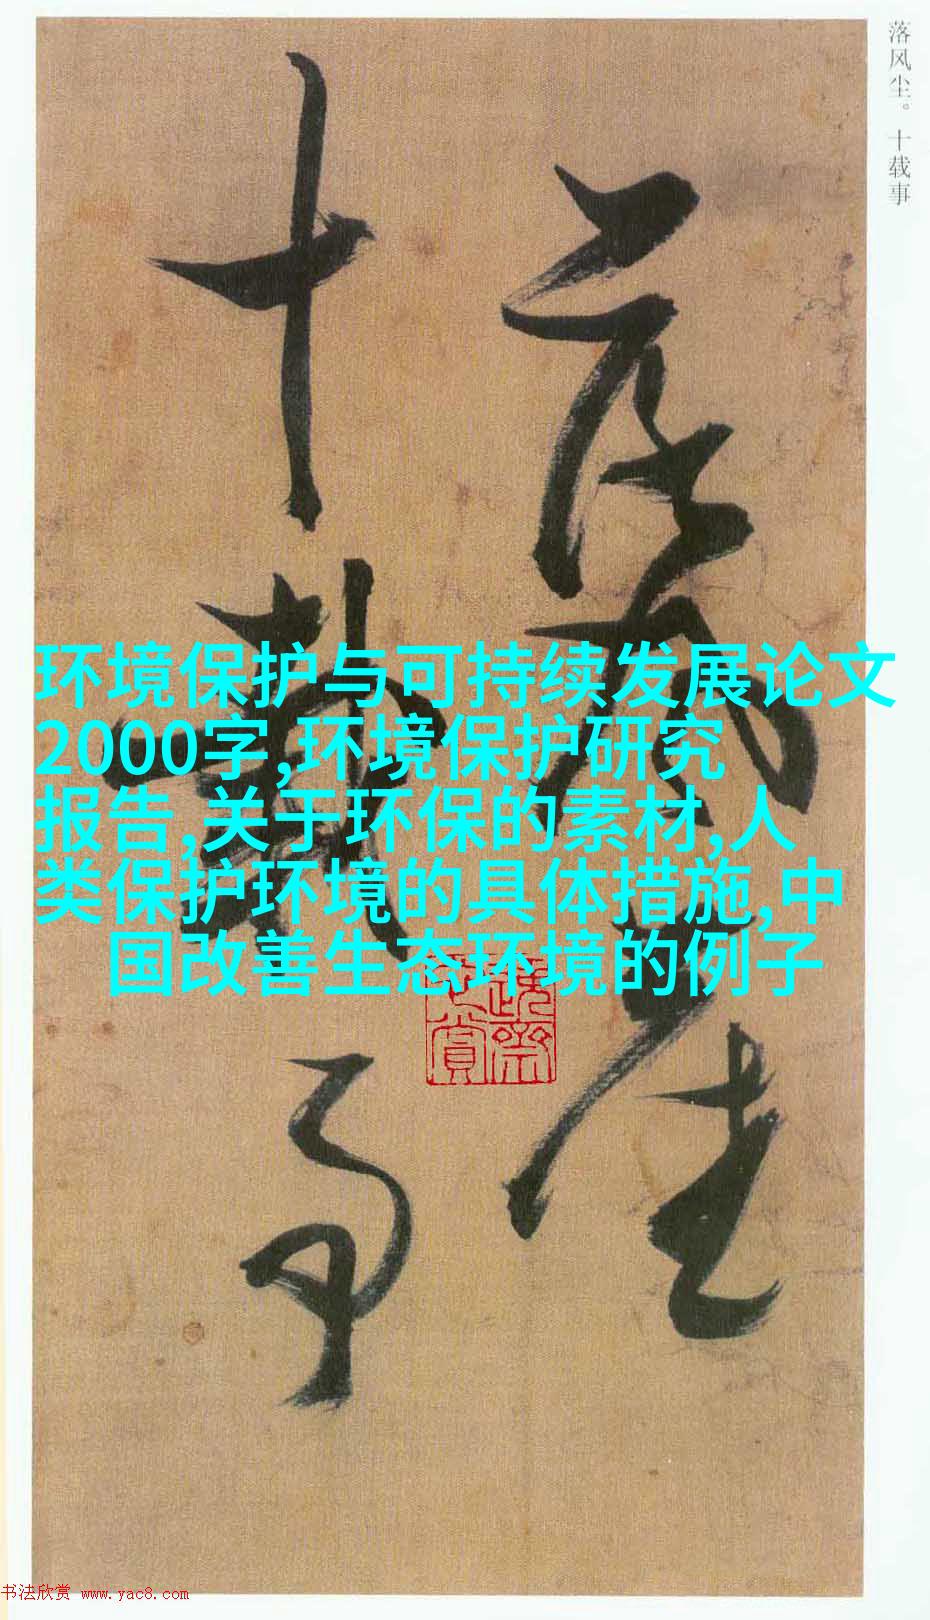 落风尘。十载事
落风尘
十载事
环境保护与可持续发展论文
2000字,环境保护研究
报告,关于环保的素材,人
类保护环境的具体措施,中
国改善生态环境的例子
书法欣赏 www.yac8.com